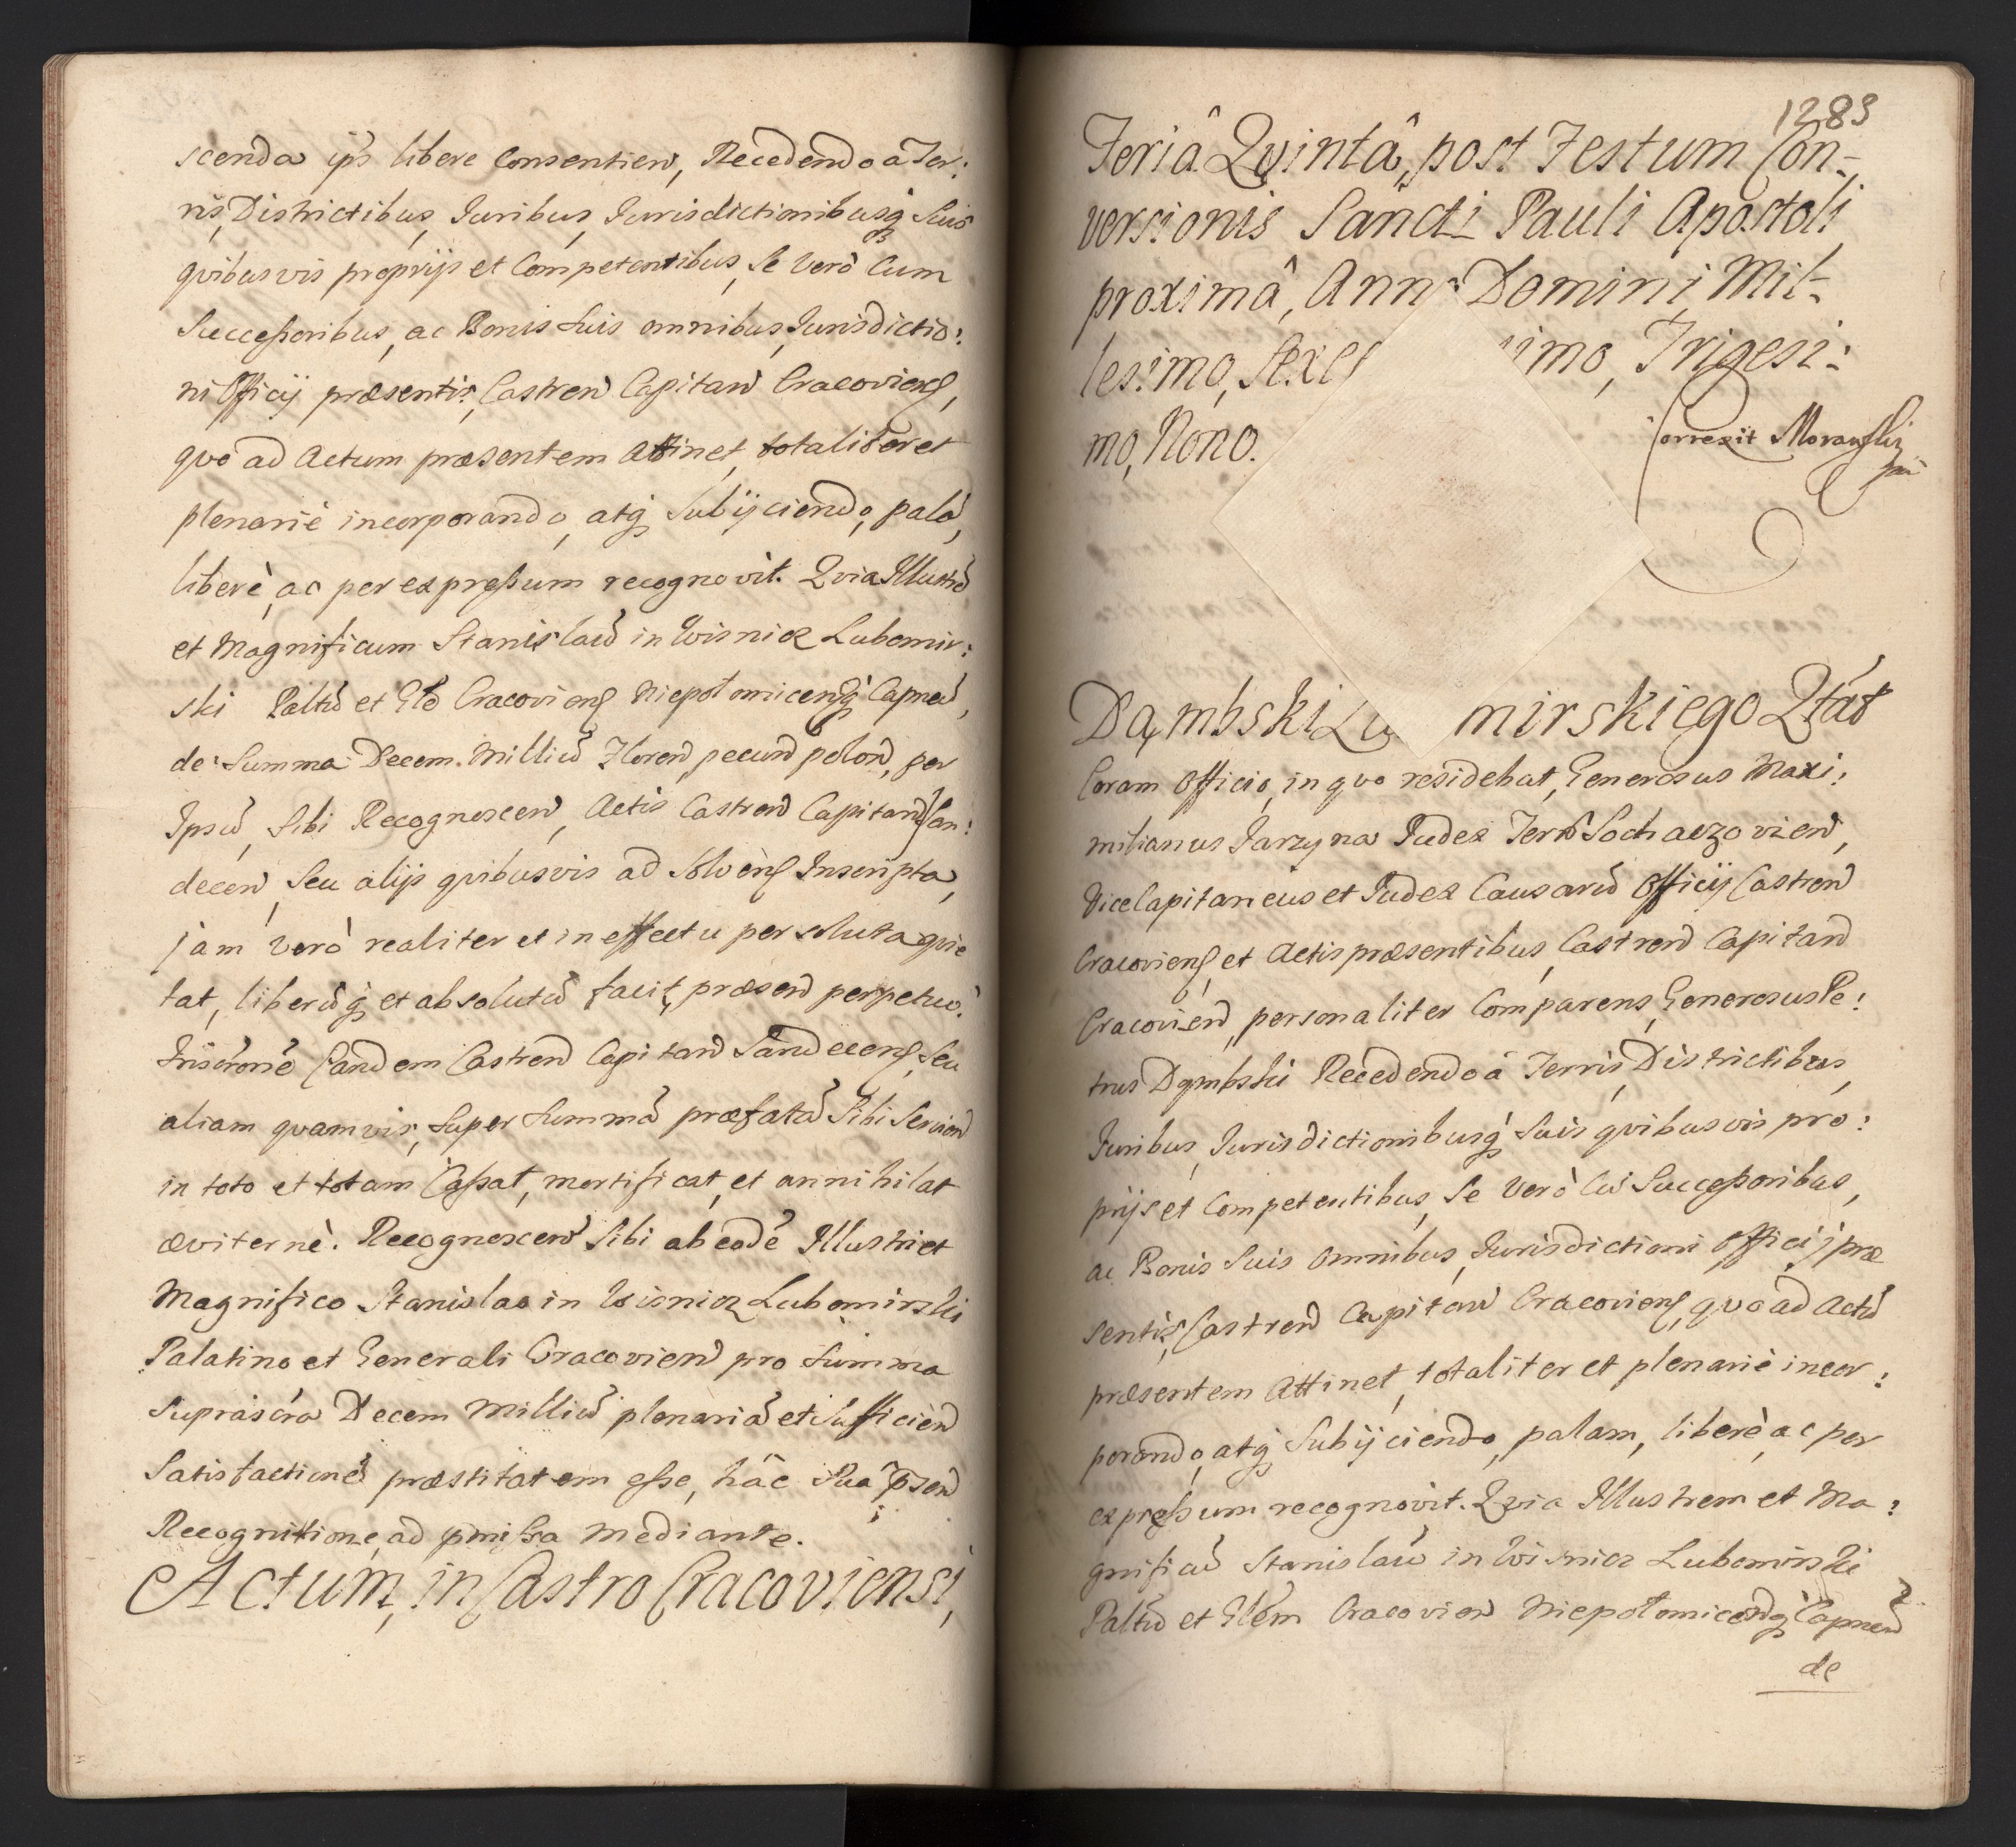 scenda ijs libere Consentien, Recedendo a Ter:
ris, Districtibus, Juribus, Jurisdictionibusq́ Suis
qvibusvis proprijs et Competentibus, se verò Cum
Successoribus, ac Bonis Suis omnibus, Jurisdictio:
ni Officij præsentis, Castren Capitan Cracoviens,
qvo ad Actum præsentem attinet, totaliter et
plenariè incorporando, atq́ Subijciendo, palā,
liberè, ac per expressum recognovit. Qvia Illustrē
et Magnificum Stanislaū in Wisnicz Lubomir:
ski Paltū et Glē Cracoviens Niepolomicensq́ Capneū,
de Summa Decem Milliū Floren pecun polon, per
Ipsū, Sibi Recognoscen, Actis Castren Capitan San:
decen, Seu alijs qvibusvis ad Solvens Inscripta,
jam verò realiter et in effectu persoluta qvie
tat, liberūq́ et absolutū facit, præsen perpetuò.
Inscrōnē eandem Castren Capitan Sandecens, Seu
aliam qvamvis, Super Summā præfatā Sibi Servien
in toto et totam Cassat, mortificat, et annihilat
æviternè. Recognoscen Sibi ab eodē Illustri et
Magnifico Stanislao in Wisnicz Lubomirski
Palatino et Generali Cracovien pro Summa
Suprascra Decem Milliū plenariā et Sufficien
Satisfactionē præstitatem esse, hâc Suâ p̄sen
Recognitione, ad p̄missa mediante.
Actum, in Castro Cracoviensi,
1283
Feriâ Qvintâ, post Festum Con-
versionis Sancti Pauli Apostoli
proximâ, Ann: Domini, Mil-
lesimo, Sexce imo, Trigesi:
mo, Nono.
Correxit Moravski
Dąmbski Lu mirskiego Qtat
Coram Officio, in qvo residebat, Generosus Maxi:
milianus Jarzyna Judex Terrē Sochaczovien,
Vicecapitaneus et Judex Causarū Officij Castren
Cracoviens, et Actis præsentibus, Castren Capitan
Cracovien, personaliter Comparens, Generosus Pe:
trus Dąmbski Recedendo á Terris, Districtibus,
Juribus, Jurisdictionibusq́ Suis qvibusvis pro:
prijs et Competentibus, Se verò Cū Successoribus,
ac Bonis Suis omnibus, Jurisdictioni Officij præ
sentis, Castren Capitan Cracoviens, qvo ad Actū
præsentem Attinet, totaliter et plenariè incor:
porando, atq́ Subijciendo, palam, liberè, ac per
expressum recognovit. Qvia Illustrem et Ma:
gnificū Stanislaū in Wisnicz Lubomirski
Paltū et Glēm Cracovien Niepolomicenq́ Capneū
de